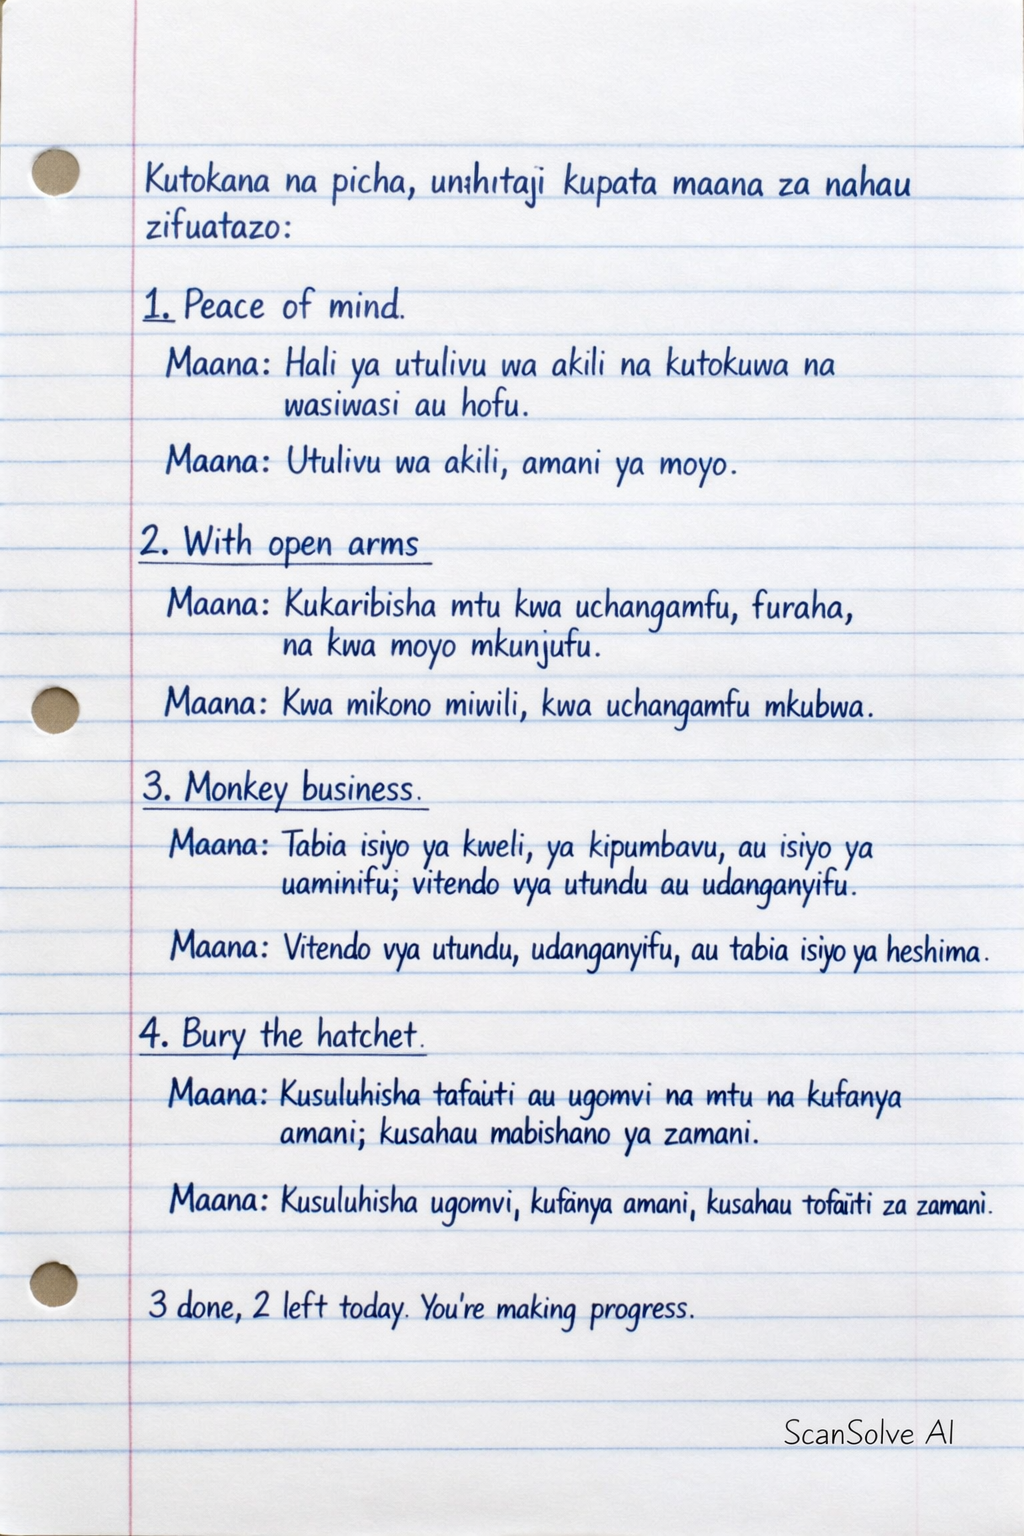 Kutokana na picha, unahitaji kupata maana za nahau
zifuatazo:
1. Peace of mind.
Maana: Hali ya utulivu wa akili na kutokuwa na
wasiwasi au hofu.
Maana: Utulivu wa akili, amani ya moyo.
2. With open arms
Maana: Kukaribisha mtu kwa uchangamfu, furaha,
na kwa moyo mkunjufu.
Maana: Kwa mikono miwili, kwa uchangamfu mkubwa.
3. Monkey business.
Maana: Tabia isiyo ya kweli, ya kipumbavu, au isiyo ya
uaminifu; vitendo vya utundu au udanganyifu.
Maana: Vitendo vya utundu, udanganyifu, au tabia isiyo ya heshima.
4. Bury the hatchet.
Maana: Kusuluhisha au ugomvi na mtu na kufanya
amani; kusahau mabishano ya zamani.
Maana: Kusuluhisha ugomvi, kufanya amani, kusahau za zamani.
3 done, 2 left today. You're making progress.
ScanSolve AI